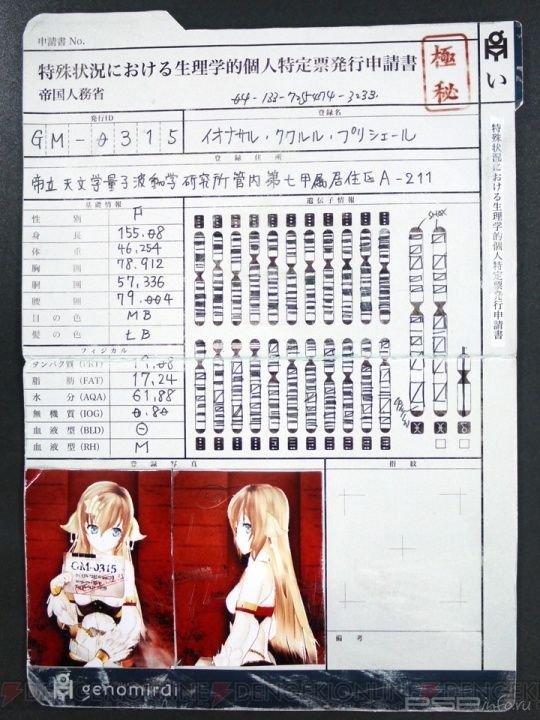 申請書 No.
特殊状況における生理学的個人特定票発行申請書
帝国人務省
極秘
い
特殊状況における生理学的個人特定票発行申請書
発行ID
登録名
GM-0315
イオナサル・ククルル・プリシェール
登録住所
帝立天文学量子波動学研究所管内第七甲属居住区A-211
基礎情報
遺伝子情報
性別 F
身長 155.08
体重 46.254
胸囲 78.912
胴囲 57.336
腰囲 79.004
目の色 MB
髪の色 LB
フィジカル
タンパク質(PRT) 19.08
脂肪(FAT) 17.24
水分(AQA) 61.88
無機質(IOG) 0.80
血液型(BLD) Θ
血液型(RH) M
登録写真
指紋
GM-0315
備考
genomirai
DENGEKIONLINE
PSPinfo.ru